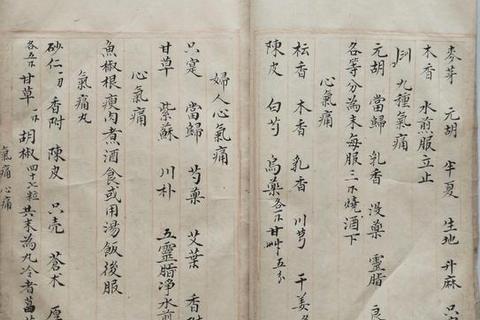 麥芽 元胡 半夏 生地 升麻 只
木香 水煎服立止
九種氣痛
元胡 當歸 乳香 没藥 靈脂 良
各等分為末每服三下燒酒下
心氣痛
枟香 木香 乳香 川芎 干姜
陳皮 白芍 烏藥各下甘艸五分
婦人心氣痛
只寔 當歸 芍藥 艾葉 香附
甘草 紫蘇 川朴 五靈脂净水煎
心氣痛
魚椒根瘦肉煮酒食或用湯飯後服
氣痛丸
砂仁 香附 陳皮 只壳 蒼朮 厚
各五下甘草 胡椒四十九粒共末為丸冷者
氣痛心痛